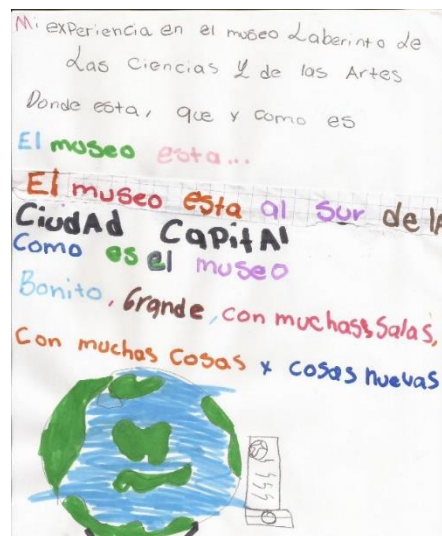 Mi experiencia en el museo Laberinto de
Las Ciencias Y de las Artes
Donde esta, que y como es
El museo esta...
El museo esta al sur de lA
CiudAd CapitAl
Como es el museo
Bonito, Grande, con muchass Salas,
Con muchas Cosas x cosas nuevas